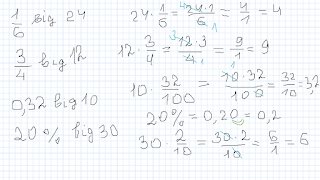 1/6 від 24
3/4 від 12
0,32 від 10
20% від 30
24 · 1/6 = 24·1/6 = 4/1 = 4
12 · 3/4 = 12·3/4 = 9/1 = 9
10 · 32/100 = 10·32/100 = 32/10 = 3,2
20% = 0,20 = 0,2
30 · 2/10 = 30·2/10 = 6/1 = 6